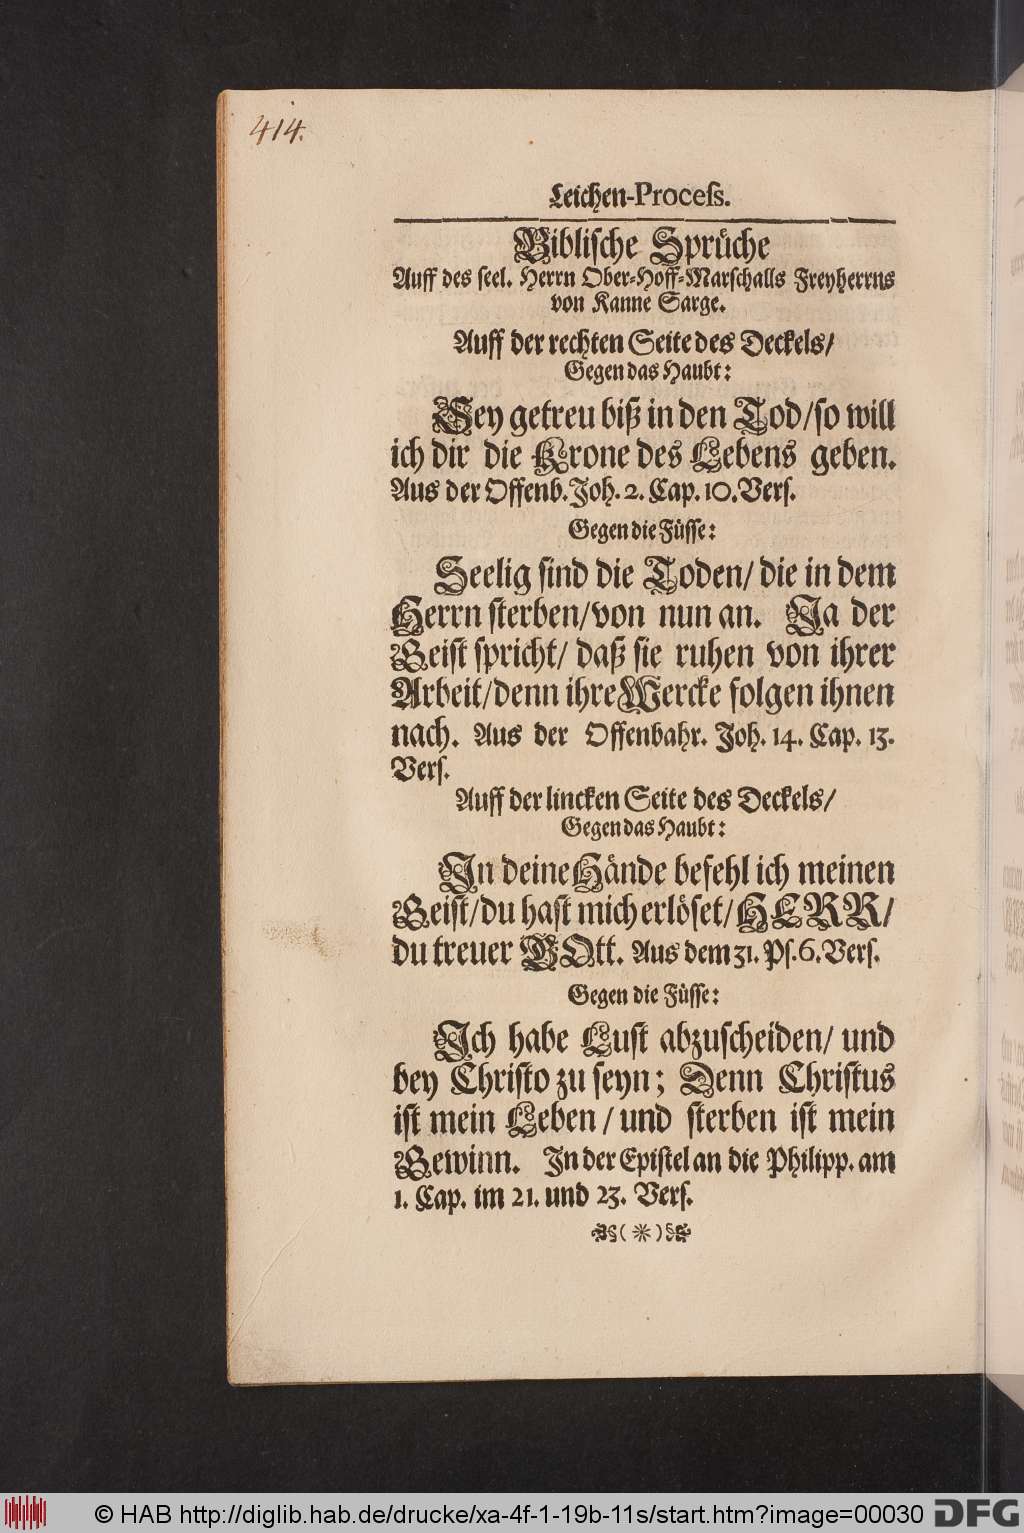 414.
Leichen-Proceſs.
Bibliſche Sprüche
Auff des ſeel. Herrn Ober-Hoff-Marſchalls Freyherrns
von Kanne Sarge.
Auff der rechten Seite des Deckels/
Gegen das Haubt:
Sey getreu biß in den Tod/ſo will
ich dir die Krone des Lebens geben.
Aus der Offenb. Joh. 2. Cap. 10. Verſ.
Gegen die Füſſe:
Seelig ſind die Toden/ die in dem
Herrn ſterben/von nun an. Ja der
Geiſt ſpricht/ daß ſie ruhen von ihrer
Arbeit/denn ihre Wercke folgen ihnen
nach. Aus der Offenbahr. Joh. 14. Cap. 13.
Verſ.
Auff der lincken Seite des Deckels/
Gegen das Haubt:
In deine Hände befehl ich meinen
Geiſt/du haſt mich erlöſet/HERR/
du treuer GOtt. Aus dem 31. Pſ. 6. Verſ.
Gegen die Füſſe:
Ich habe Luſt abzuſcheiden/ und
bey Chriſto zu ſeyn; Denn Chriſtus
iſt mein Leben/ und ſterben iſt mein
Gewinn. In der Epiſtel an die Philipp. am
1. Cap. im 21. und 23. Verſ.
© HAB http://diglib.hab.de/drucke/xa-4f-1-19b-11s/start.htm?image=00030 DFG